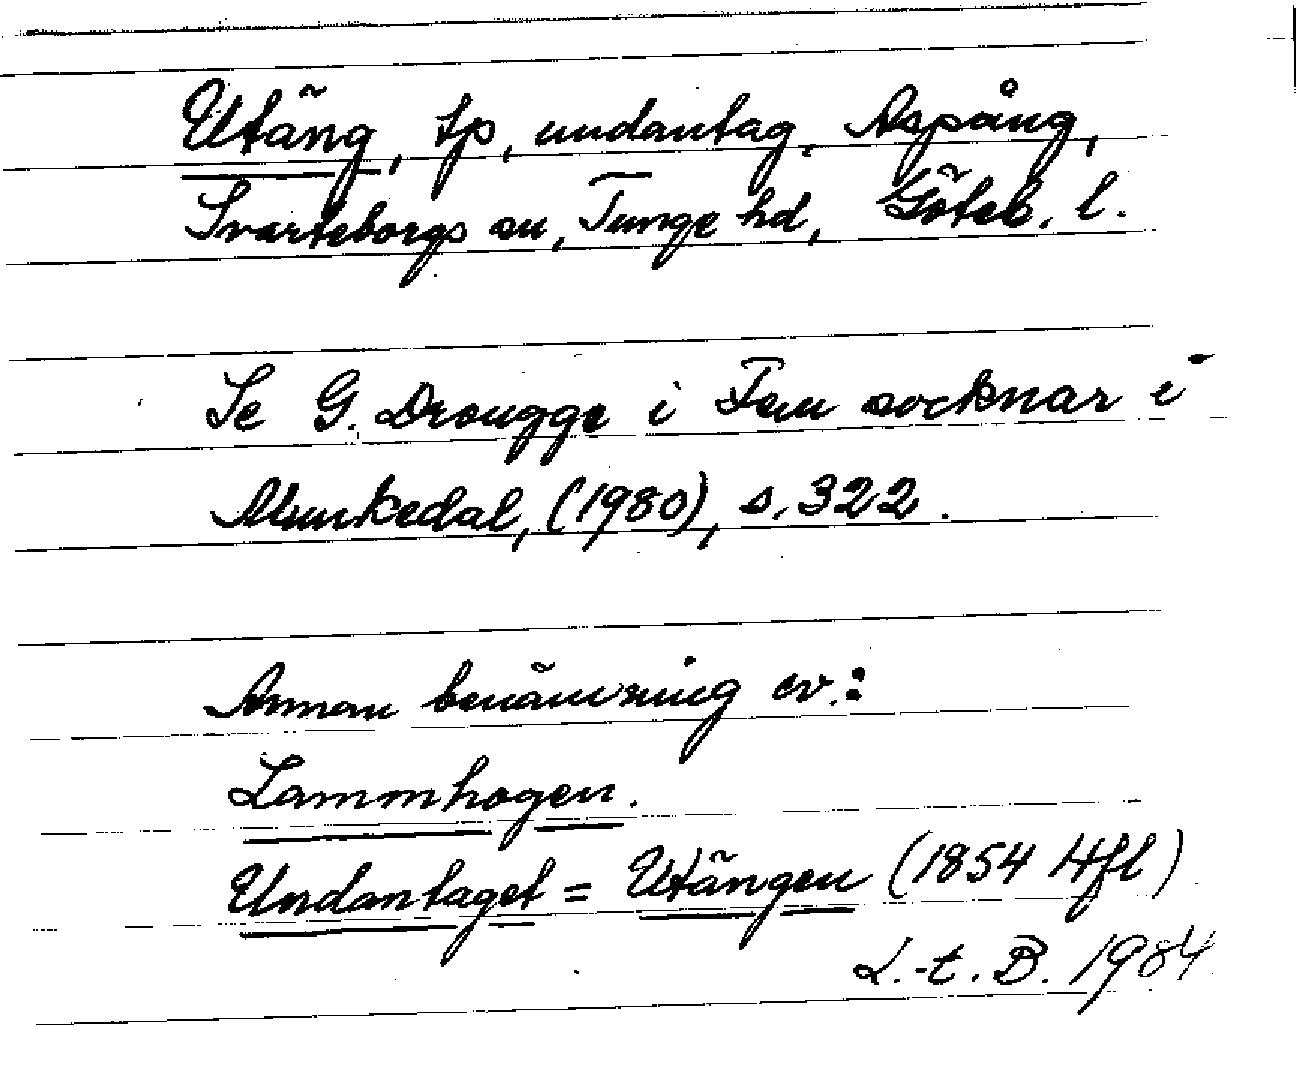 Utäng, tp, undantag, Aspång,
Svarteborgs sn, Tunge hd, Göteb. l.
Se G. Drougge i Fem socknar i
Munkedal, (1980), s. 322.
Annan benämning ev.:
Lammhogen.
Undantaget = Utängen (1854 Hfl)
L.-t. B. 1984